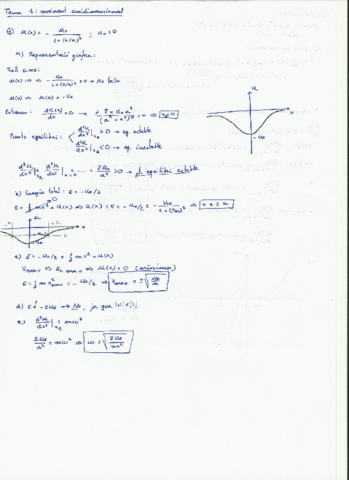 Tema 1: moviment unidimensional
① U(x) = - U₀/(1+(x/a)²) ; U₀ > 0
a) Representació gràfica:
Tall eixos:
U(x)=0 ⇒ - U₀/(1+(x/a)²) = 0 → No talla
U(0) ⇒ U(0) = -U₀
Extrems: dU(x)/dx = 0 → 
Punts equilibri: d²U/dx²|ₓₑ > 0 → eq. estable
d²U/dx²|ₓₑ < 0 → eq. inestable
d²U/dx²|ₓₑ = d²U/dx²|ₓ₌₀ = ... = 2U₀/a² > 0 → pt equilibri estable
b) Energia total: E = -U₀/2
E = ½ mẋ² + U(x) ⇒ U(x) = E = -U₀/2 = - U₀/(1+(x/a)²) ⇒ x = ± a
c) E = -U₀/2 = ½ mv² + U(x)
Vmax ⇒ Ec max ⇒ U(x) = 0 (mínima)
E = ½ m v²max = - U₀/2 ⇒ Vmax = ±√(U₀/m)
d) E = -2U₀ → No, ja que |E|<|U₀|
e) d²U/dx²|ₓₑ = mω²
2U₀/a² = mω² ⇒ ω = √(2U₀/ma²)